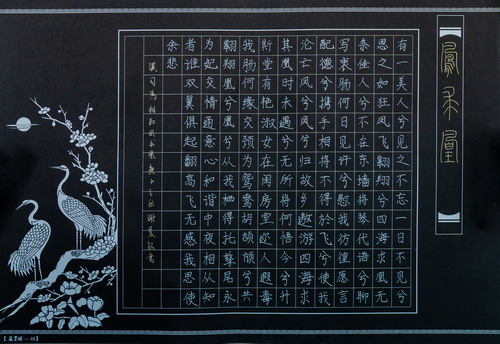 鳳求凰
有一美人兮见之不忘一日不见兮
思之如狂凤飞翱翔兮四海求凰无
奈佳人兮不在东墙将琴代语兮聊
写衷肠何日见许兮慰我彷徨愿言
配德兮携手相将不得於飞兮使我
沦亡凤兮凤兮归故乡遨游四海求
其凰时未遇兮无所将何悟今兮升
斯堂有艳淑女在闺房室迩人遐毒
我肠何缘交颈为鸳鸯胡颉颃兮共
翱翔凰兮凰兮从我栖得托孳尾永
为妃交情通意心和谐中夜相从知
者谁双翼俱起翻高飞无感我思使
余悲
汉司马相如凤求凰